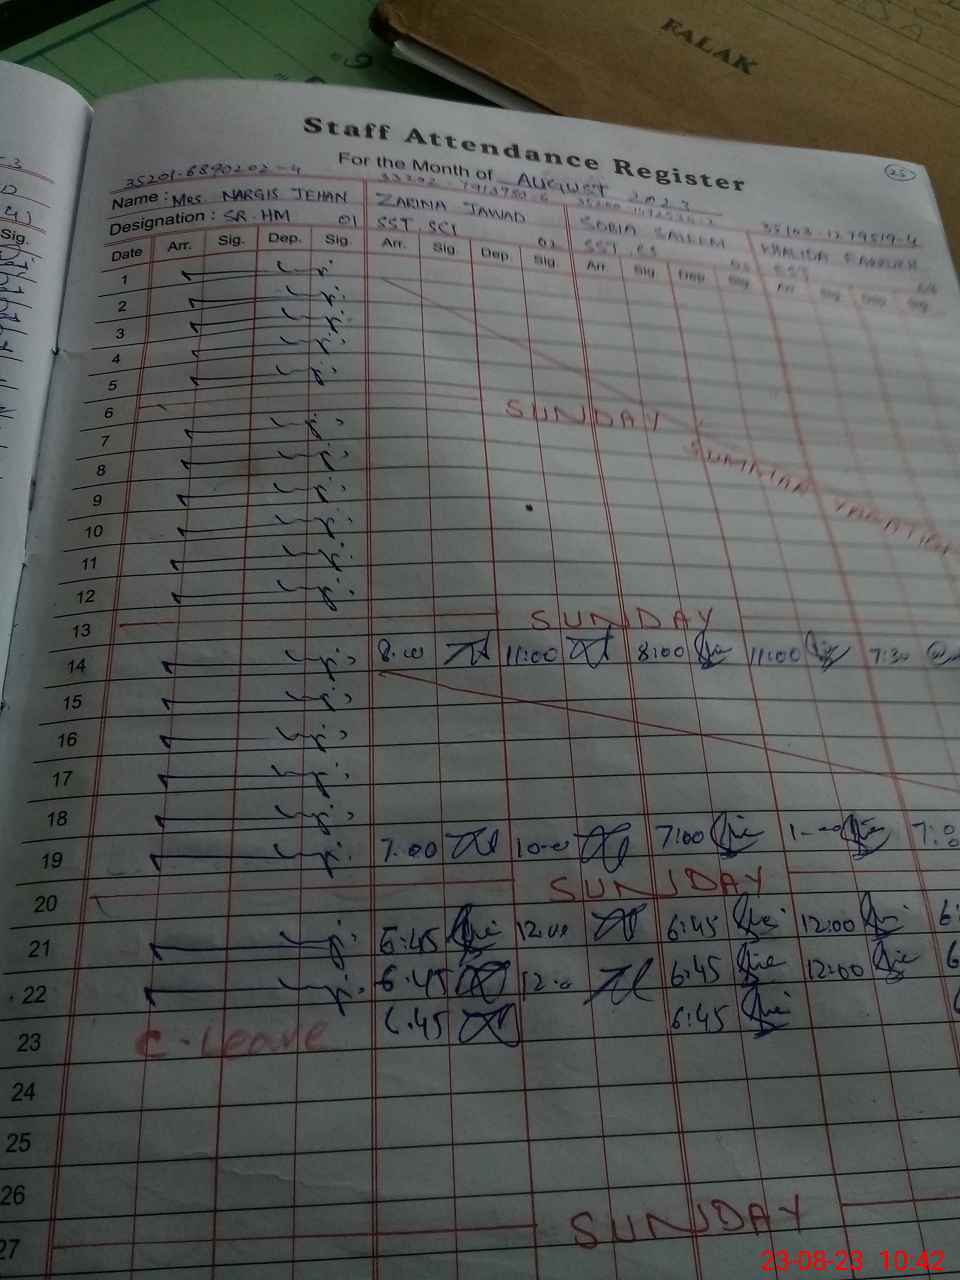 FALAK
Staff Attendance Register
For the Month of AUGUST 2023
25
35201-6890202-4 35103-1279519-4
Name : Mrs. NARGIS JEHAN ZARINA JAWAD SOBIA SALEEM KHALIDA
Designation : SR. HM 01 SST SCI 02 SST. CS 03 EST
Date Arr. Sig. Dep. Sig. Arr. Sig. Dep. Sig. Arr. Sig. Dep. Sig. Arr. Sig. Dep. Sig.
Sig.
1
2
3
4
5
6 SUNDAY
7 SUMMAR VACATION
8
9
10
11
12
13 SUNDAY
14 8:00 11:00 8:00 11:00 7:30
15
16
17
18
19 7:00 10:00 7:00 7:0
20 SUNDAY
21 6:45 12:00 6:45 12:00 6:
22 6:45 12:0 6:45 12:00 6
23 C. Leave 6.45 6:45
24
25
26
27 SUNDAY
23-08-23 10:42